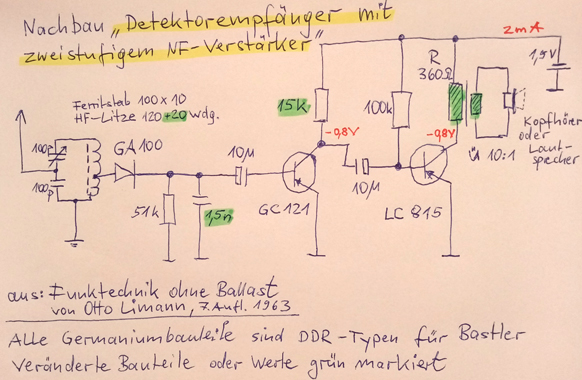 Nachbau "Detektorempfänger mit
zweistufigem NF-Verstärker"
2mA
1,5V
R
360Ω
15k
100k
Ferritstab 100 x 10
HF-Litze 120+20 wdg.
-0,8V
-0,8V
Kopfhörer
oder
Laut-
sprecher
ü 10:1
100p
GA100
10µ
100p
10µ
51k
1,5n
GC121
LC 815
aus: Funktechnik ohne Ballast
von Otto Limann, 7. Aufl. 1963
Alle Germaniumbauteile sind DDR-Typen für Bastler
Veränderte Bauteile oder Werte grün markiert